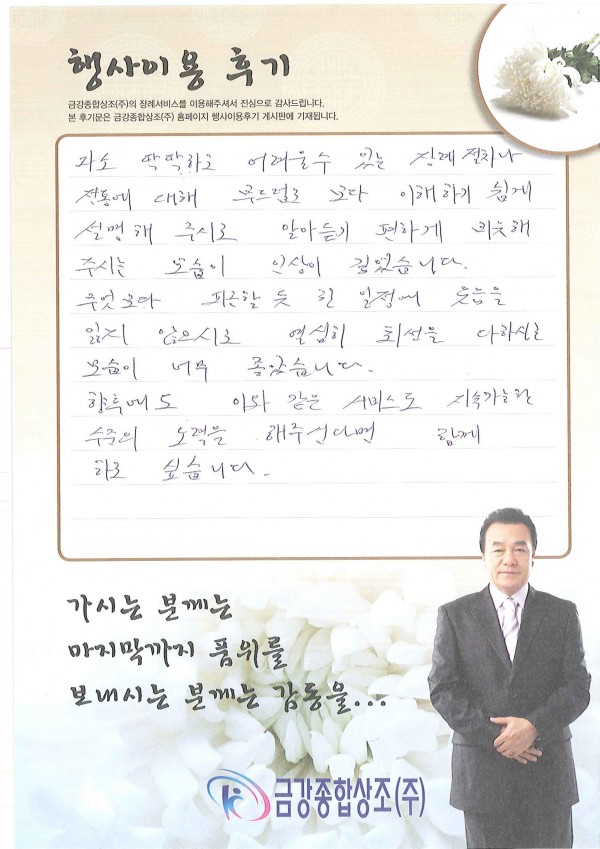 행사이용 후기
금강종합상조(주)의 장례서비스를 이용해주셔서 진심으로 감사드립니다.
본 후기문은 금강종합상조(주) 홈페이지 행사이용후기 게시판에 기재됩니다.
다소 딱딱하고 어려울수 있는 장례 절차나
전통에 대해 부드럽고 보다 이해하기 쉽게
설명해 주시고 알아듣기 편하게 비유해
주시는 모습이 인상이 깊었습니다.
무엇보다 피곤할 듯 한 일정에 웃음을
잃지 않으시고 열심히 최선을 다하시는
모습이 너무 좋았습니다.
향후에도 이와 같은 서비스로 지속가능한
수준의 노력을 해주신다면 함께
하고 싶습니다.
가시는 분께는
마지막까지 품위를
보내시는 분께는 감동을...
금강종합상조(주)